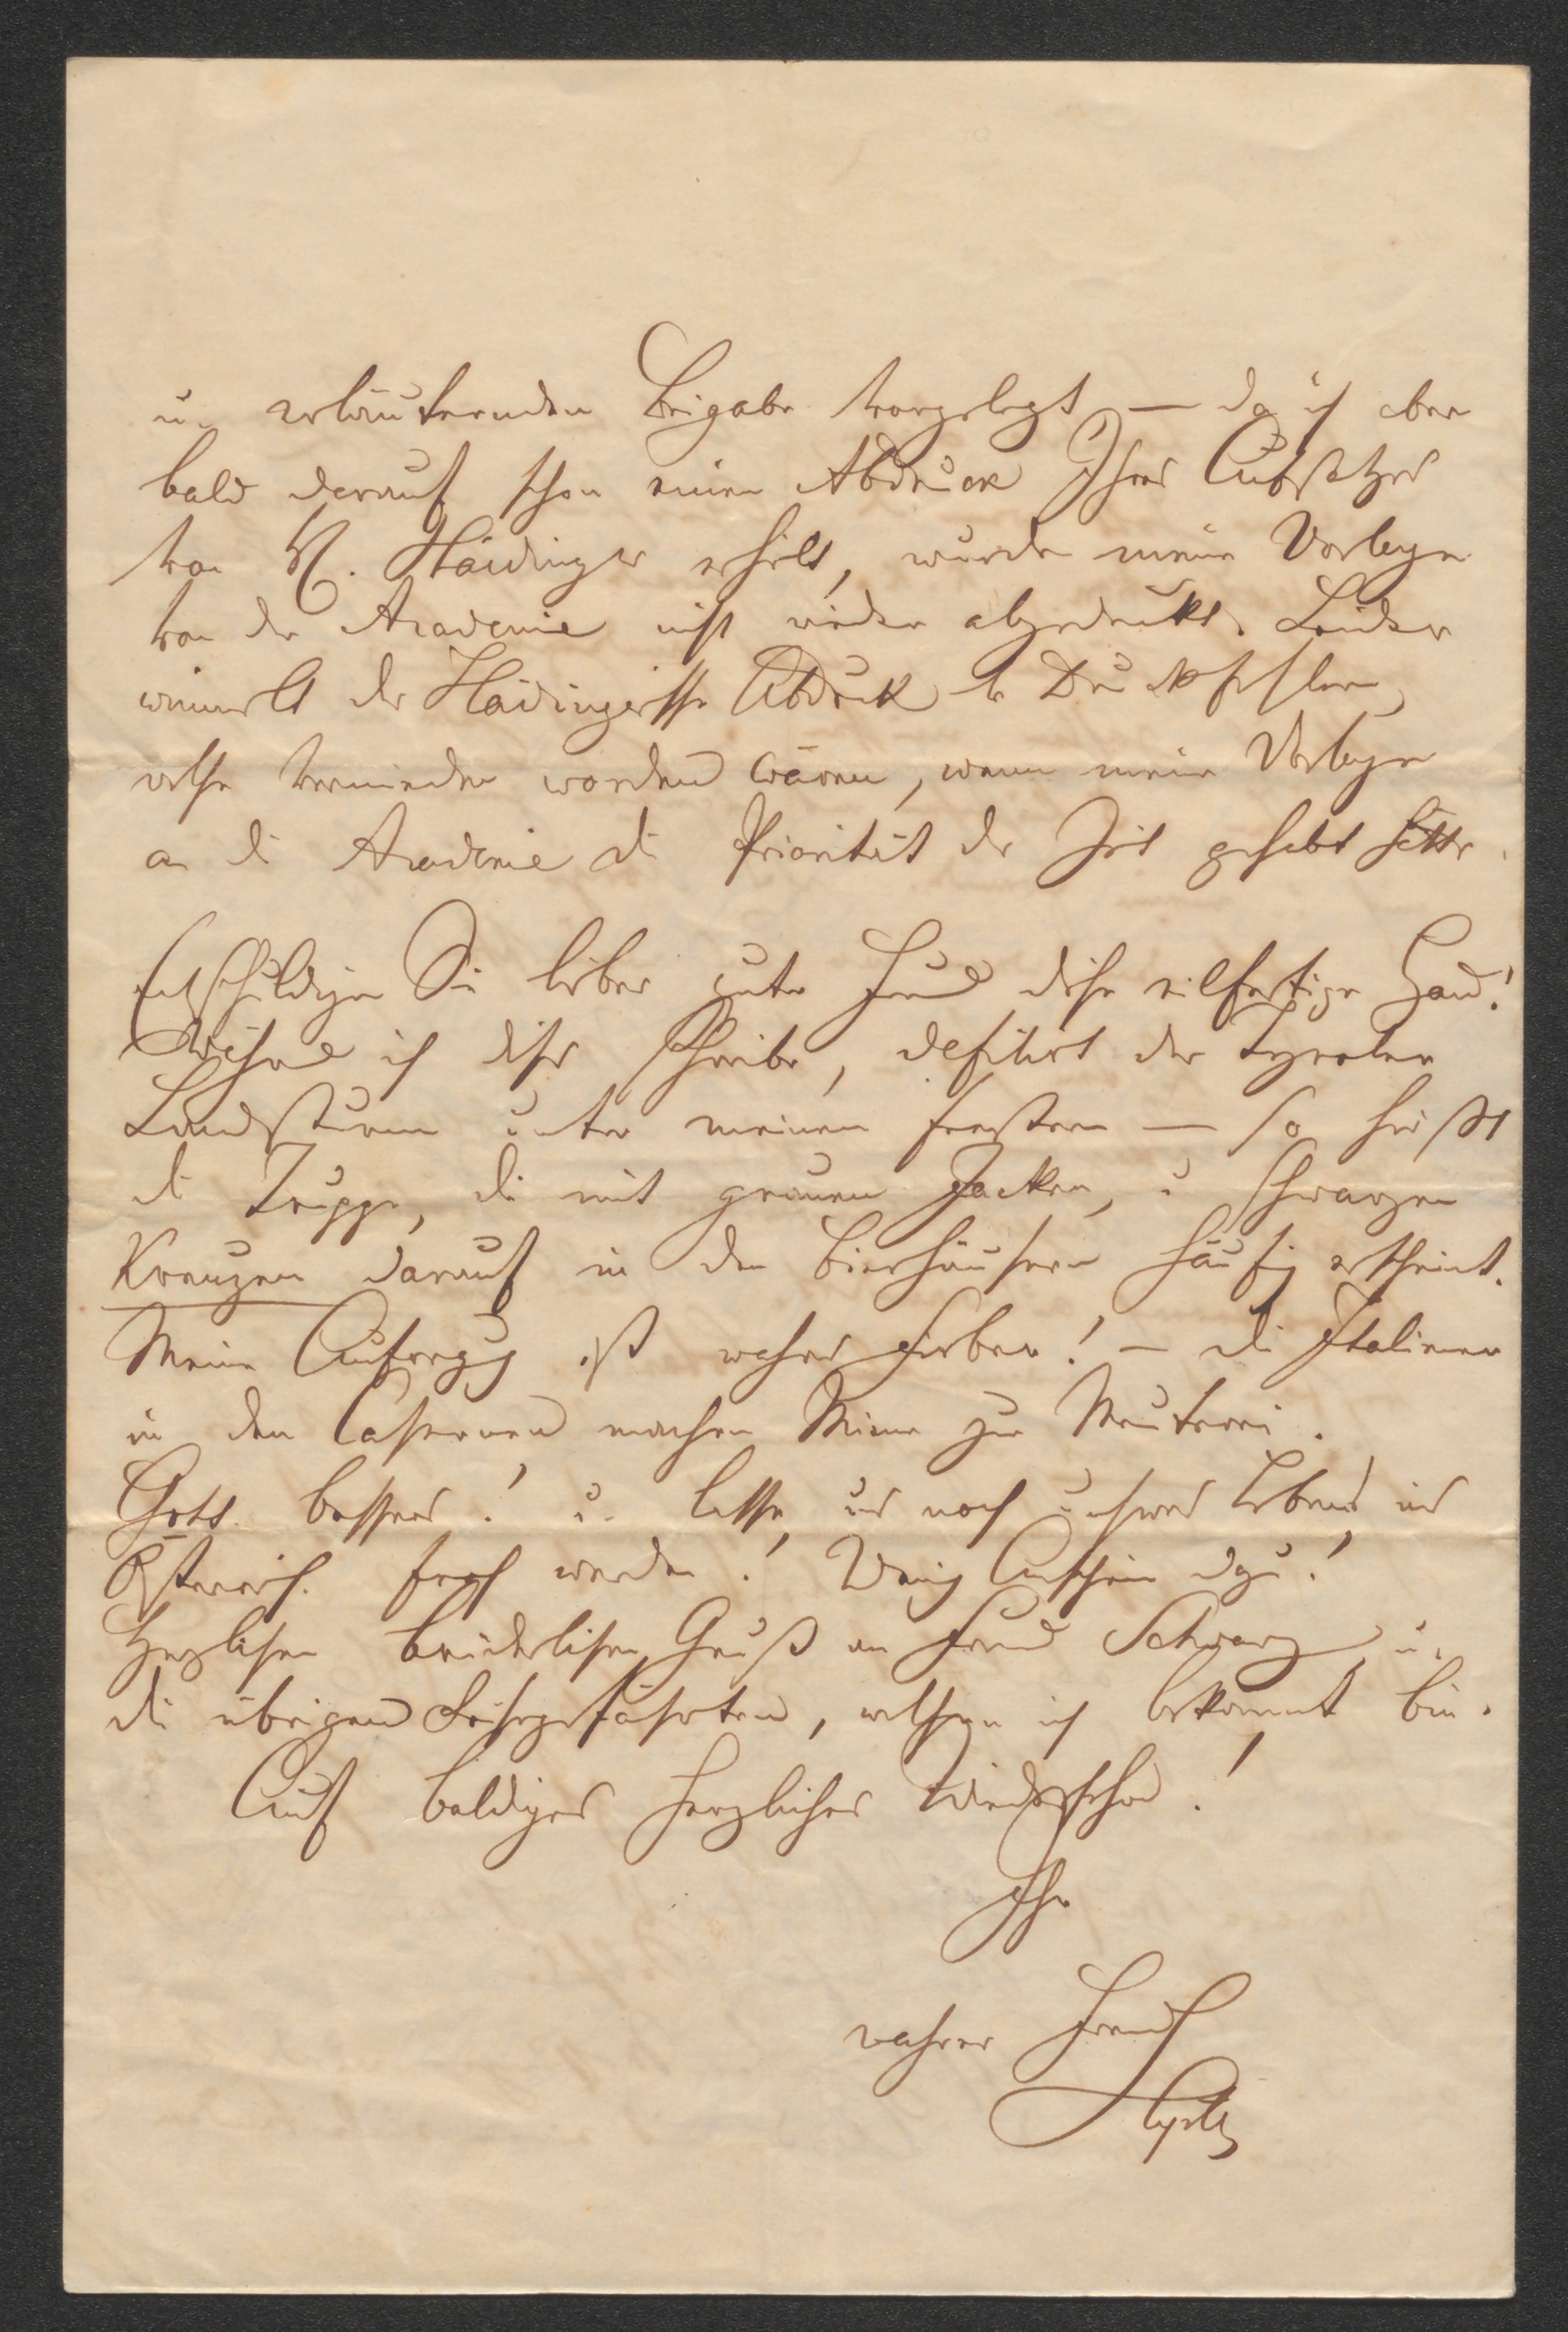 u. erläuternden Beigabe vorgelegt — da ich aber
bald darauf schon einen Abdruck Ihres Aufsatzes
von H. Haidinger erhielt, wurde meine Vorlage
von der Academie nicht wieder abgedruckt. Leider
wimmelt der Haidingersche Abdruck v Druckfehlern,
welche vermieden worden wären, wenn meine Vorlage
an die Academie die Priorität der Zeit gehabt hätte.
Entschuldigen Sie lieber guter Freund diese eilfertige Hand!
Während ich dieß schreibe, defilirt der Tyroler
Landsturm unter meinen Fenstern — so heißt
die Truppe, die mit grauen Jacken, u schwarzen
Kreuzen darauf in den Bierhäusern häufig erscheint.
Meine Aufregung ist wahres Fieber! — die Italiener
in den Casernen machen Miene zur Meuterei.
Gott bessers! u. lasse uns noch unseres Lebens in
Österreich. froh werden! Wenig Anschein dazu!
Herzlichen brüderlichen Gruß an Freund Schwarz u.
die übrigen, welchen ich bekannt bin.
Auf baldiges herzliches Wiedersehen!
Ihr
wahrer Freund
Hyrtl